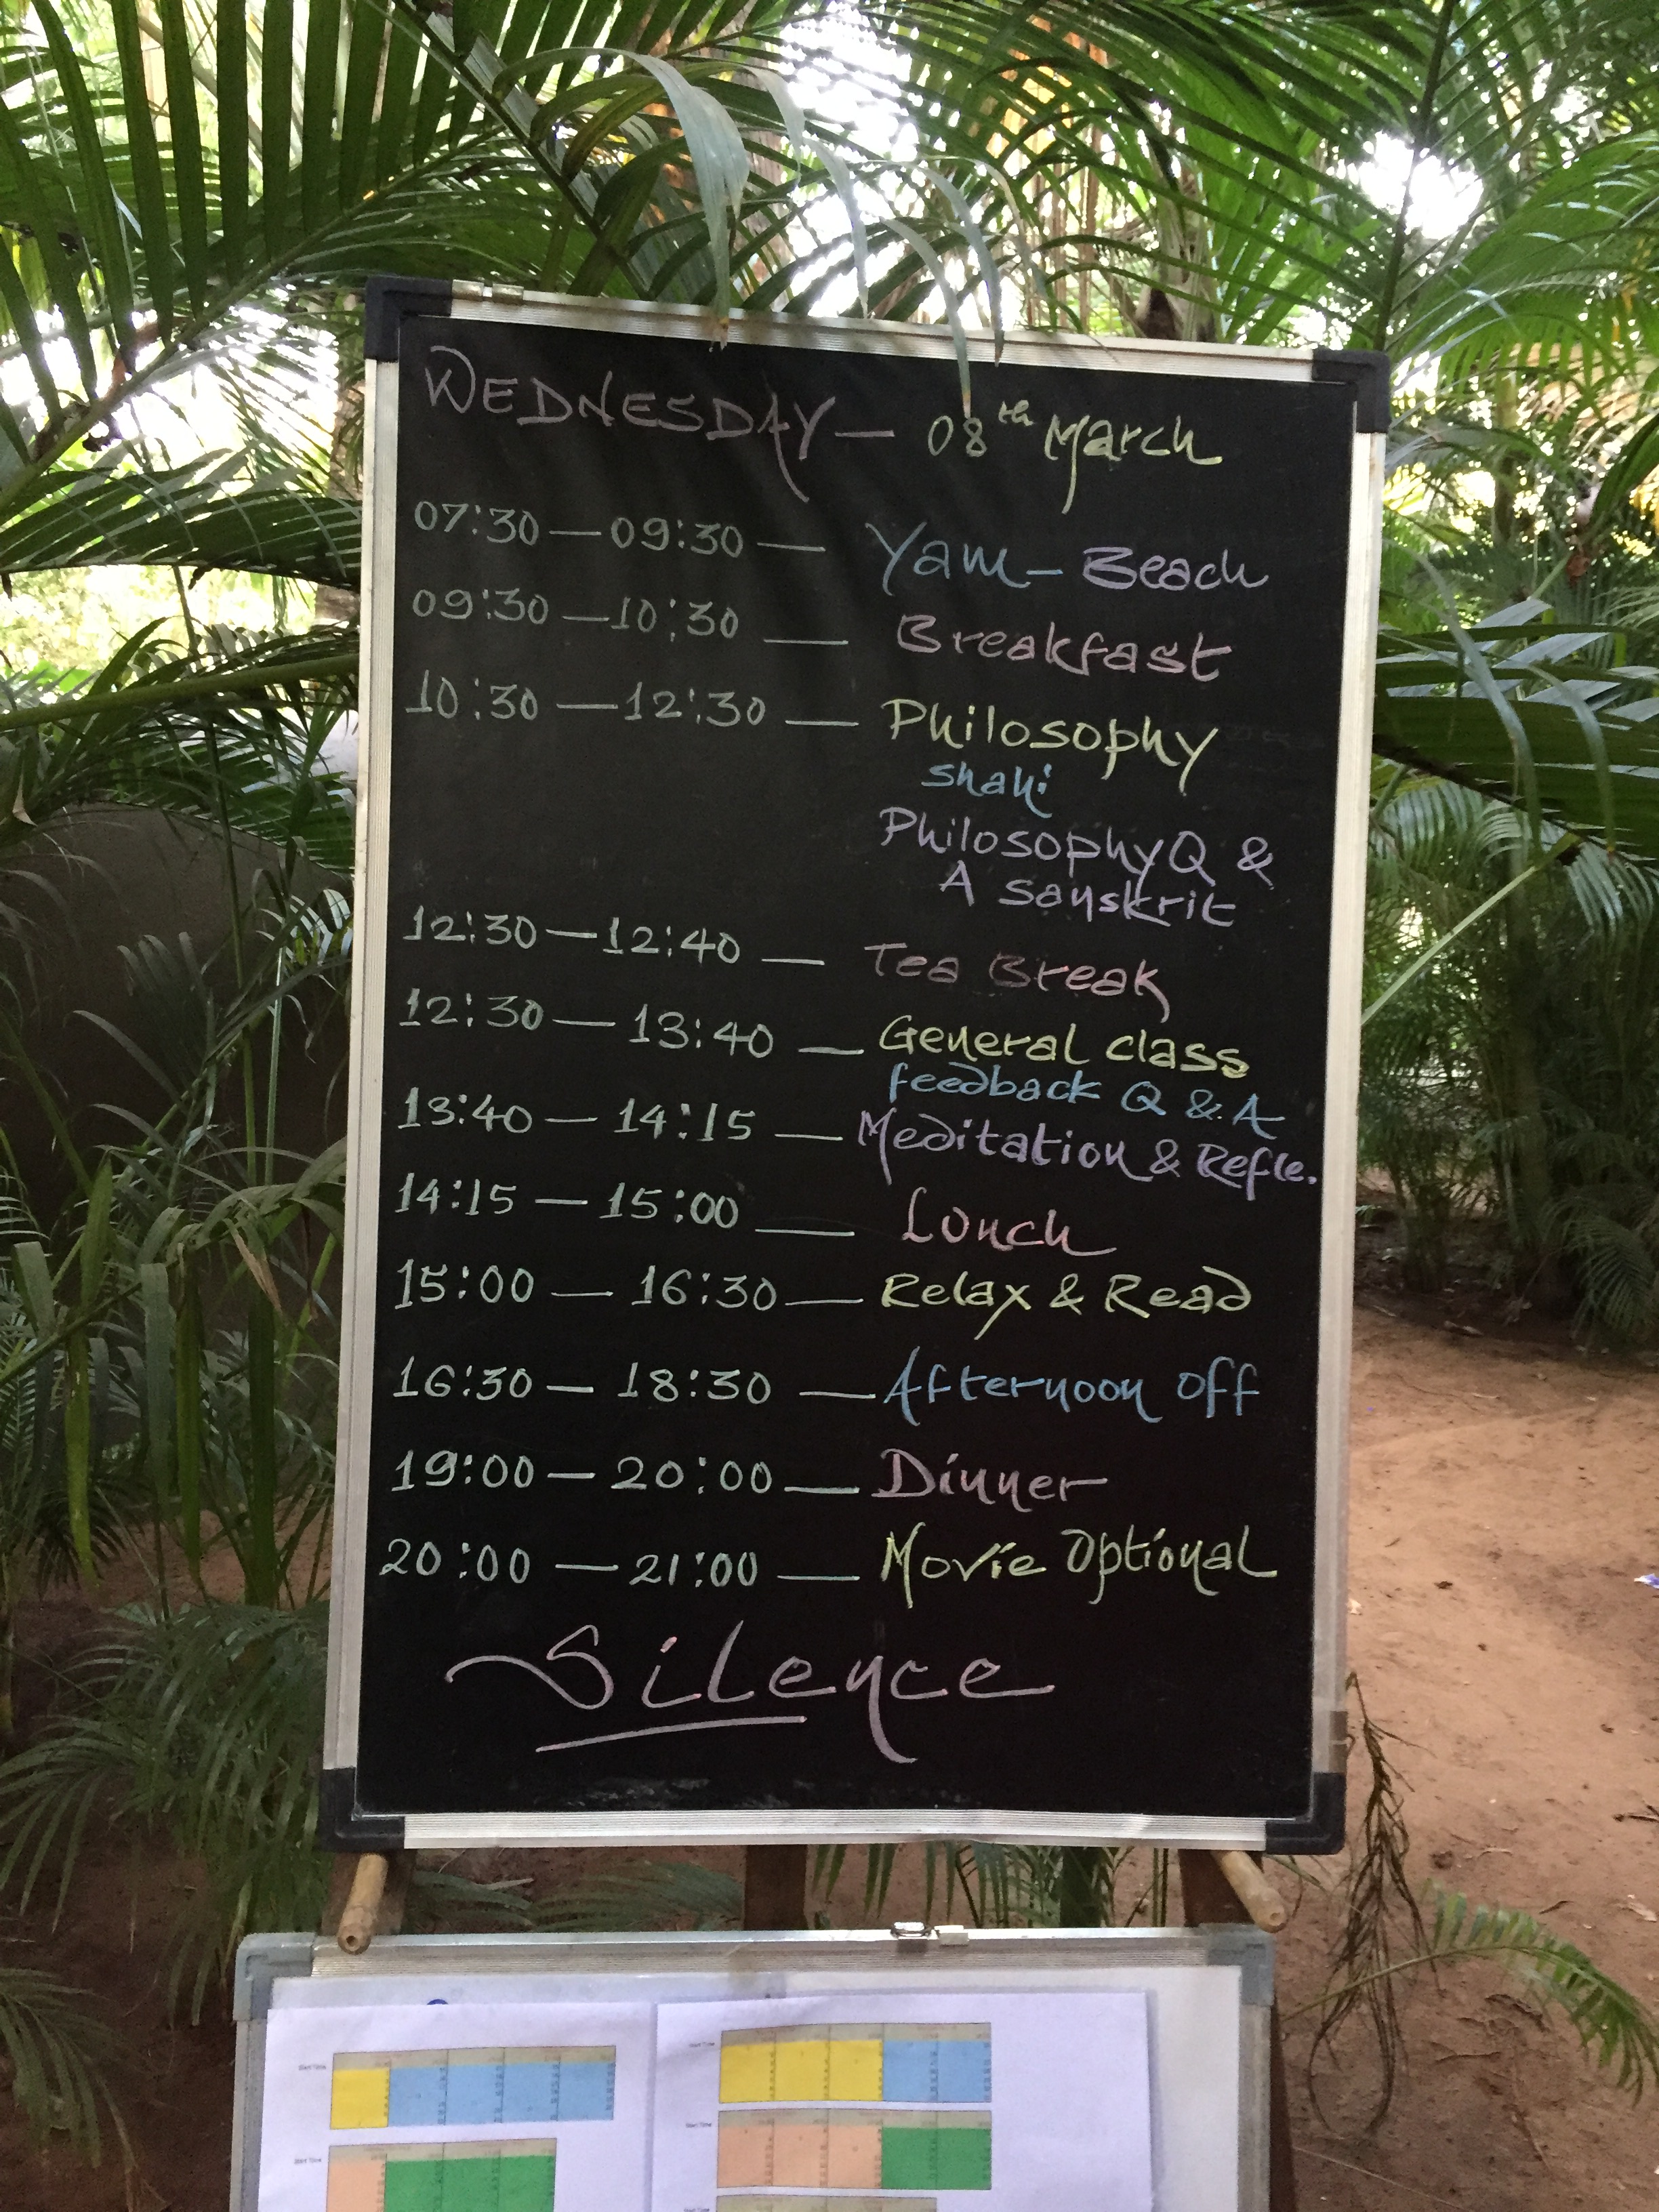 WEDNESDAY — 08th March
07:30 — 09:30 — Yam – Beach
09:30 — 10:30 — Breakfast
10:30 — 12:30 — Philosophy
Philosophy Q &
A Sanskrit
12:30 — 12:40 — Tea Break
12:30 — 13:40 — General class
feedback Q & A
13:40 — 14:15 — Meditation & Refle.
14:15 — 15:00 — Lunch
15:00 — 16:30 — Relax & Read
16:30 — 18:30 — Afternoon off
19:00 — 20:00 — Dinner
20:00 — 21:00 — Movie Optional
Silence
Start Time
Start Time
Start Time
Start Time